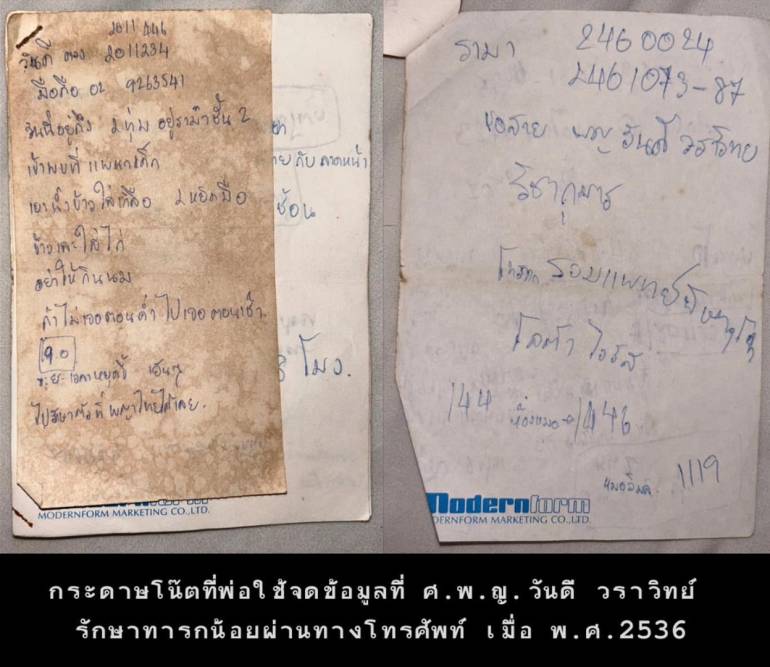 2011446
วันดี ตรง 2011234
มือถือ 02 9263541
วันนี้อยู่ถึง 2 ทุ่ม อยู่รามาชั้น 2
เข้าพบที่แผนกเด็ก
เอาน้ำข้าวใส่เกลือ 2 หยิบมือ
ข้าวเละใส่ไก่
อย่าให้กินนม
ถ้าไม่เจอตอนค่ำไปเจอตอนเช้า
9.0
ไปรักษาต่อที่พญาไทได้เลย.
กับคาดหน้า
ช้อน
โมง.
MODERNFORM MARKETING CO.,LTD.
รามา 2460024
2461073-87
ขอสาย พญ วันดี วราวิทย์
วิชากุมาร
โรงพยาบาล
โลต้า ไวรัส
144 ห้องหมอ → 1446
1119
Modernform
DERNFORM MARKETING CO.,LTD.
กระดาษโน๊ตที่พ่อใช้จดข้อมูลที่ ศ.พ.ญ.วันดี วราวิทย์
รักษาทารกน้อยผ่านทางโทรศัพท์ เมื่อ พ.ศ.2536